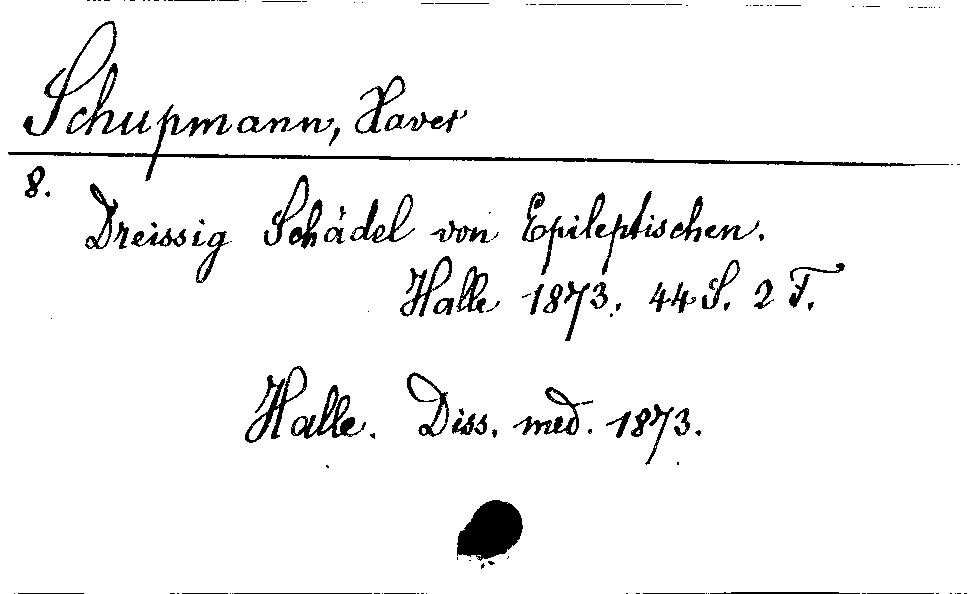 Schupmann, Xaver
8.
Dreissig Schädel von Epileptischen.
Halle 1873. 44 S. 2 T.
Halle. Diss. med. 1873.